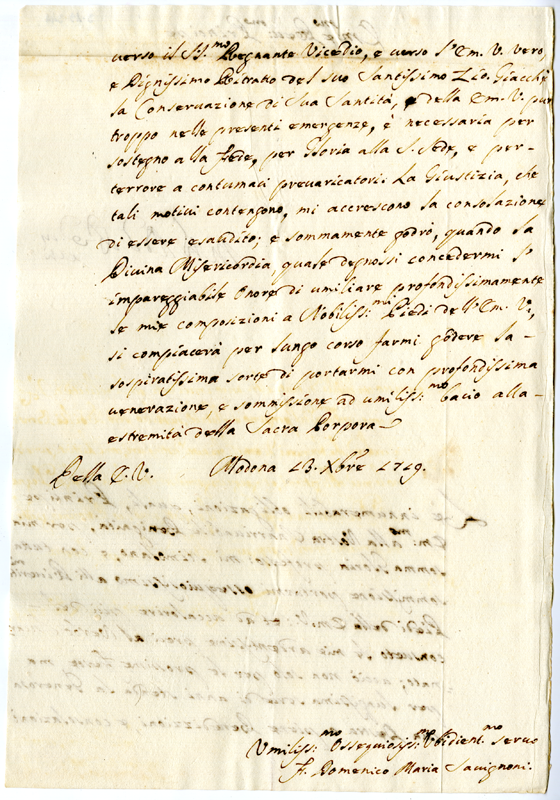 verso il SS.mo Regnante Vicedio, e verso l'Em. V. vero,
e Dignissimo Ritratto del suo Santissimo Zio. Giacchè
la Conservazione di Sua Santità, e della Em. V. pur
troppo nelle presenti emergenze, è necessaria per
sostegno alla fede, per Gloria alla S. Sede, e per-
terrore a contumaci prevaricatori. La Giustizia, che
tali motivi contengono, mi accrescono la consolazione
di essere esaudito; e sommamente godrò, quando la
Divina Misericordia, quale degnossi concedermi l'
impareggiabile Onore di umiliare profondissimamente
le mie composizioni a Nobiliss:mi Piedi dell'Em. V.,
si compiacerà per lungo corso farmi godere la-
sospiratissima sorte di portarmi con profondissima
venerazione, e sommissione ad umiliss:mo bacio alla-
estremità della Sacra Porpora
Della E. V. Modona 13. Xbre 1719.
Umiliss:mo Ossequiosiss:mo Ubidient.mo servo
F. Domenico Maria Savignoni.